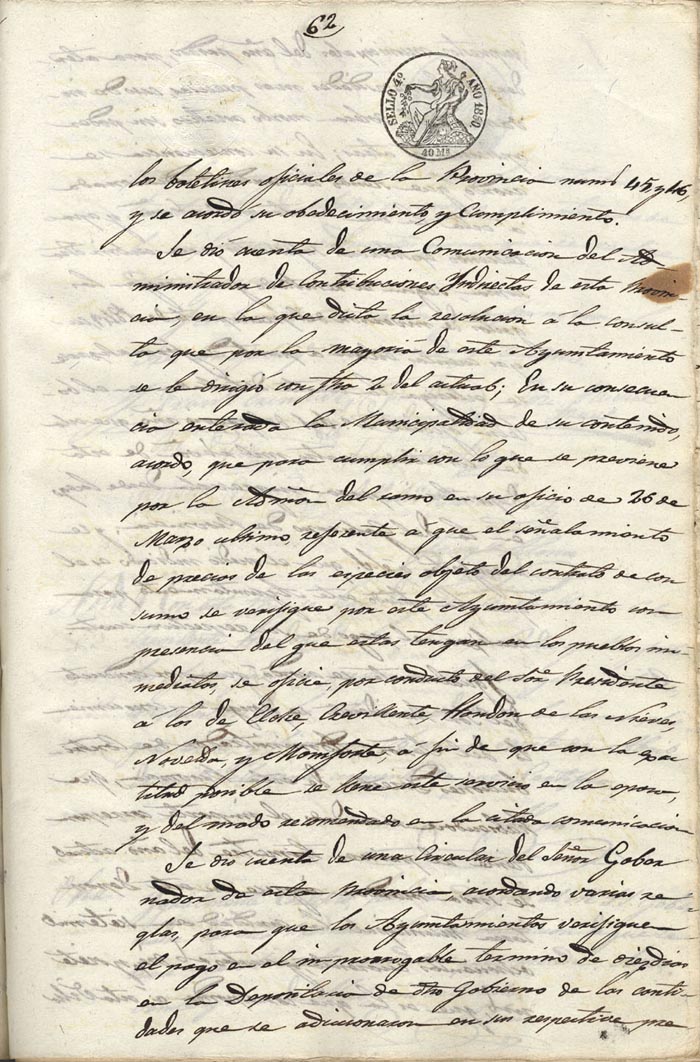 62
SELLO 4º AÑO 1850
40 Ms
los boletines oficiales de la Provincia nums 45 y 46,
y se acordó su obedecimiento y Cumplimiento.
Se dió cuenta de una Comunicacion del Ad
ministrador de Contribuciones Yndirectas de esta Provin
cia, en la que dicta la resolucion á la consul-
ta que por la mayoria de este Ayuntamiento
se le dirigió con fha 2 del actual; En su consecuen
cia enterada la Municipalidad de su contenido,
acordo, que para cumplir con lo que se previene
por la Admon del ramo en su oficio de 26 de
Marzo ultimo, referente a que el señalamiento
de precios de las especies objeto del contrato de con
sumo se verifique por este Ayuntamiento con
presencia del que estas tengan en los pueblos in-
mediatos, se oficie, por conducto del Sor Presidente
á los de Elche, Crevillente Hondon de las Nieves,
Novelda, y Monforte, a fin de que con la exac
titud posible se llene este servicio en la epoca,
y del modo recomendado en la citada comunicacion
Se dió cuenta de una Circular del Señor Gober
nador de esta Provincia, acordando varias re
glas, para que los Ayuntamientos verifiquen
el pago en el improrrogable termino de diez dias
en la Depositaria de dho Gobierno de las canti-
dades que se adicionaron en sus respectivos pre